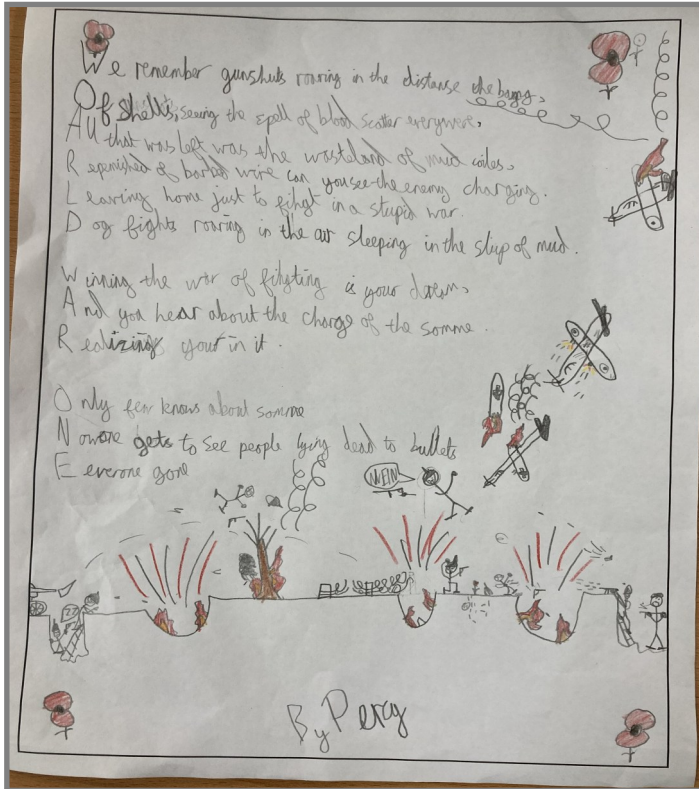 We remember gunshuts roaring in the distanse the bang,
Of shells, seeing the spell of blood scatter everywere,
All that was left was the wasteland of mud coiles,
Repenished of barbed wire can you see the enemy charging.
Leaving home just to fihgt in a stupid war.
Dog fights roaring in the air sleeping in the slup of mud.
Winning the war of fihgting is your dream,
And you hear about the charge of the somme.
Realizing your in it.
Only few knows about somme
Noone gets to see people lying dead to bullets
Everone gone
NEIN
By Percy